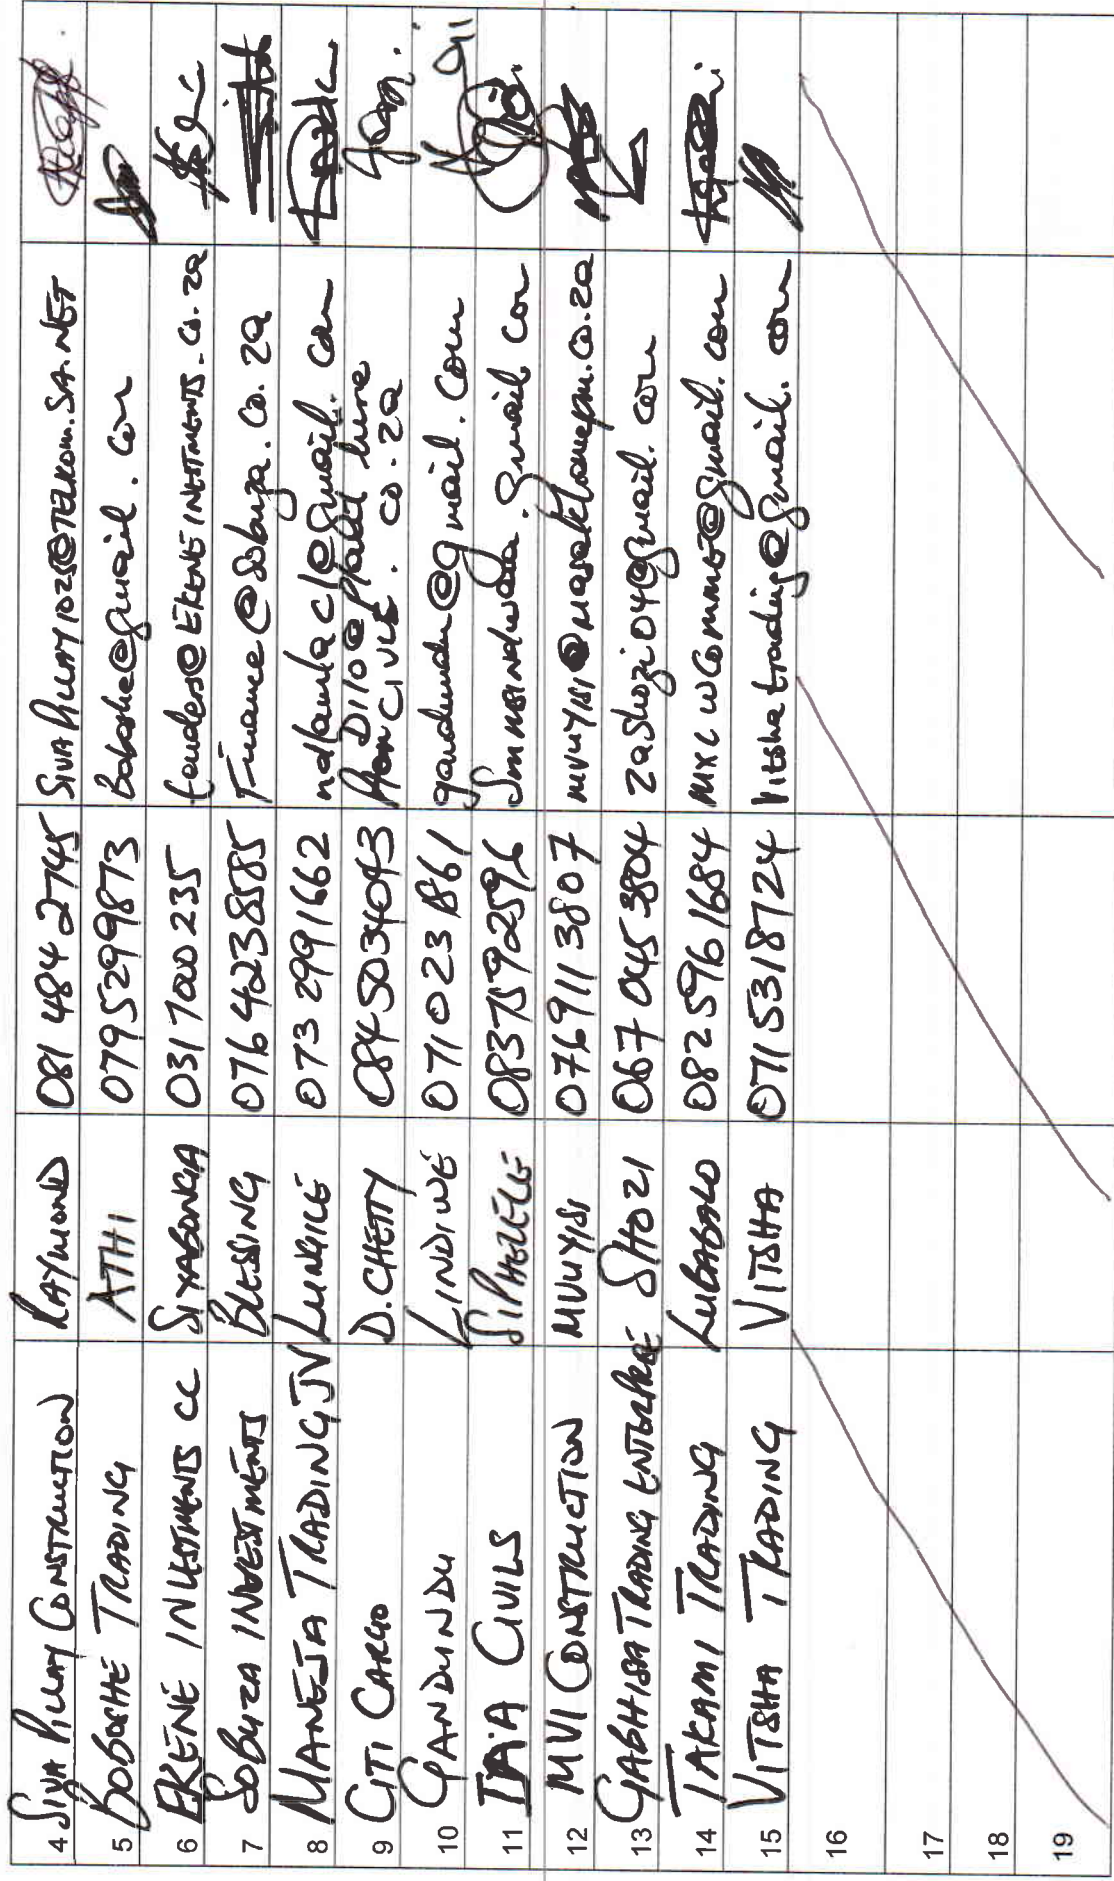 4 SIVA PILLAY CONSTRUCTION RAYMOND 081 484 2745 SIVAPILLAY1025@TELKOM.SA.NET
5 BOBOSHE TRADING ATHI 0795299873 Boboshe@gmail.com
6 EKENE INVESTMENTS CC SIYABONGA 031 7000235 tenders@EKENEINVESTMENTS.co.za
7 SOBUZA INVESTMENTS BLESSING 076 4238585 Finance@Sobuza.co.za
8 MANEJA TRADING JV LUNGILE 073 2991662 ndlamlac1@gmail.com
9 CITI CARGO D.CHETTY 0845034043
CIVIL.co.za
10 GANDUNDU LINDIWE gandundu@gmail.com
11 CIVILS SIPHELELE 0837592596 gmail com
12 MVI CONSTRUCTION MVUYISI 0769113807
13 GABHISA TRADING ENTERPRISE SHOZI 067 045 3804 zashozi04@gmail.com
14 TAKAMI TRADING LUBABALO 082 5961684
15 VITSHA TRADING VITSHA 0715318724 Vitsha trading@gmail.com
16
17
18
19